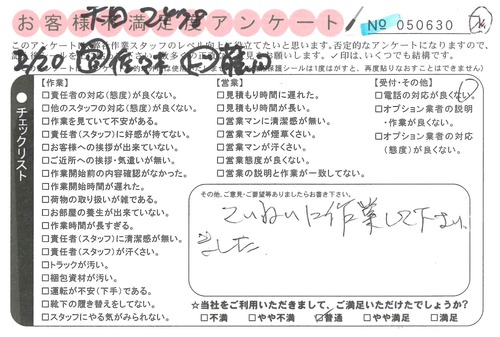 お客様不満足度アンケート
№ 050630
このアンケートは弊社作業スタッフのレベル向上に役立てたいと思います。否定的なアンケートになりますので、
い。✓印は、いくつでも結構です。
保護シールは1度がすと、再度貼りなおすことはできません)
3/20
チェックリスト
【作業】
□責任者の対応(態度)が良くない。
□他のスタッフの対応(態度)が良くない。
□作業を見ていて不安がある。
□責任者(スタッフ)に好感が持てない。
□お客様への挨拶が出来ていない。
□ご近所への挨拶・気遣いが無い。
□作業開始前の内容確認がなかった。
□作業開始時間が遅れた。
□荷物の取り扱いが雑である。
□お部屋の養生が出来ていない。
□作業時間が長すぎる。
□責任者(スタッフ)に清潔感が無い。
□責任者(スタッフ)が汗くさい。
□トラックが汚い。
□梱包資材が汚い。
□運転が不安(下手)である。
□靴下の履き替えをしてない。
□スタッフにやる気がみられない。
【営業】
□見積もり時間に遅れた。
□見積もり時間が長い。
□営業マンに清潔感が無い。
□営業マンが煙草くさい。
□営業マンが汗くさい。
□営業態度が良くない。
□営業の説明と作業が一致してない。
【受付・その他】
□電話の対応が良くない。
□オプション業者の説明
・作業が良くない。
□オプション業者の対応
(態度)が良くない。
その他、ご意見・ご要望等ありましたらお書き下さい。
ていねいに作業して下さい
ました
☆当社をご利用いただきまして、ご満足いただけたでしょうか?
□不満 □やや不満 ☑普通 □やや満足 □満足